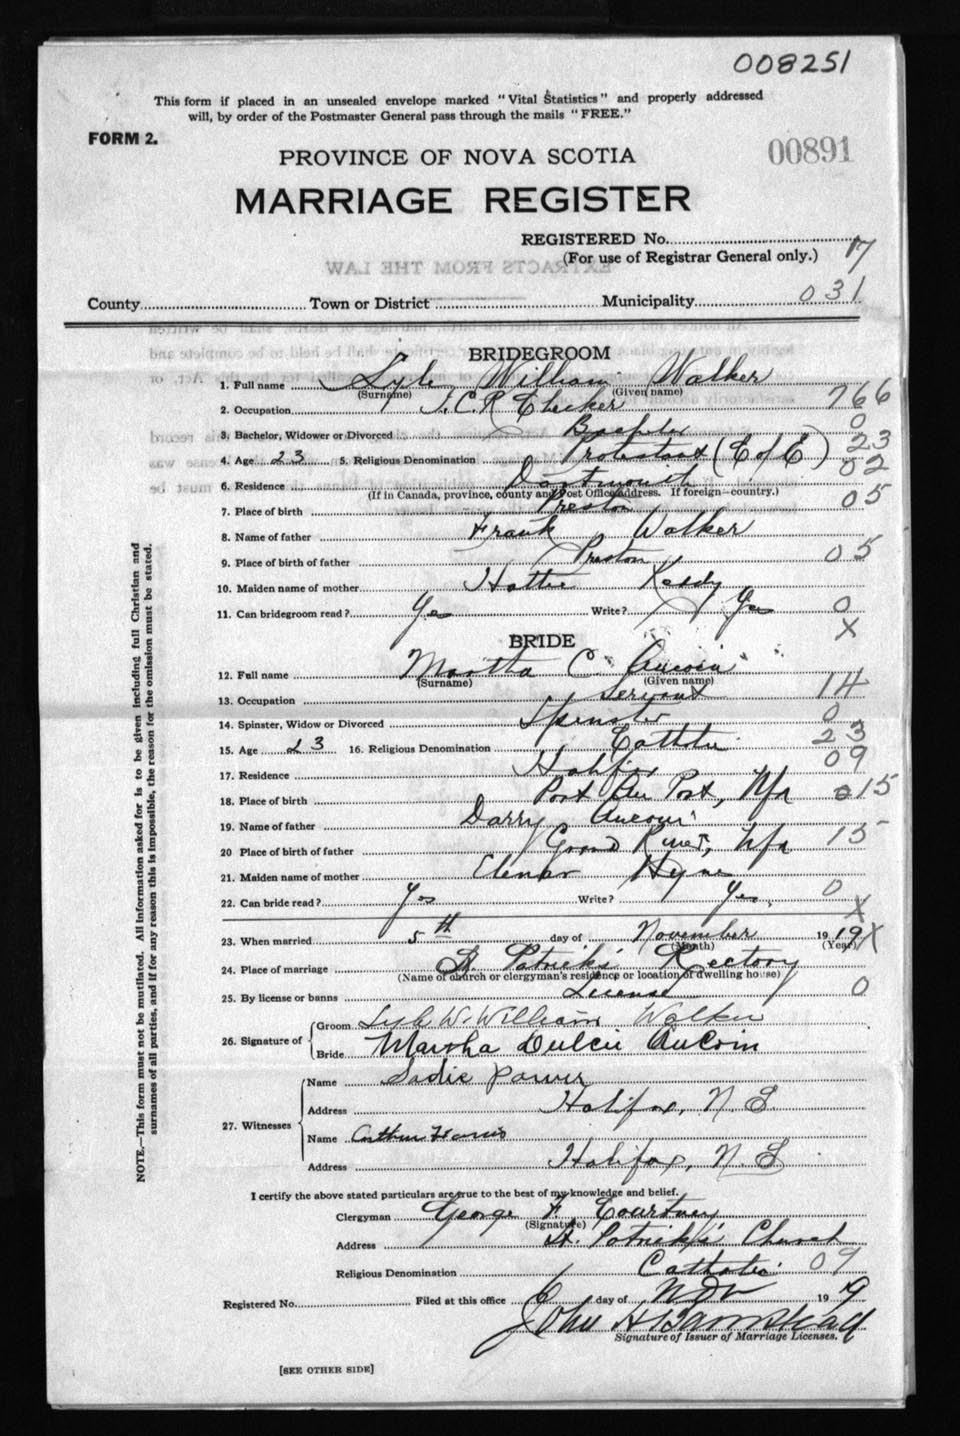 008251
This form if placed in an unsealed envelope marked "Vital Statistics" and properly addressed
will, by order of the Postmaster General pass through the mails "FREE."
FORM 2.
PROVINCE OF NOVA SCOTIA
00891
MARRIAGE REGISTER
REGISTERED No. 17
(For use of Registrar General only.)
EXTRACTS FROM THE LAW
County Town or District Municipality 031
BRIDEGROOM
1. Full name Lyle William Walker
(Surname) (Given name)
2. Occupation I.C.R Checker 766
3. Bachelor, Widower or Divorced Bachelor 0
4. Age 23 5. Religious Denomination Protestant (C of E) 23
6. Residence Dartmouth 02
(If in Canada, province, county and Post Office address. If foreign—country.)
7. Place of birth Preston 05
8. Name of father Frank Walker
9. Place of birth of father Preston 05
10. Maiden name of mother Hattie Keddy
11. Can bridegroom read? Yes Write? Yes 0
X
BRIDE
12. Full name Martha C. Aucoin
(Surname) (Given name)
13. Occupation Servant 14
14. Spinster, Widow or Divorced Spinster 0
15. Age 23 16. Religious Denomination Catholic 23
17. Residence Halifax 09
18. Place of birth Port Au Port, Nfd 015
19. Name of father Darry Aucoin
20 Place of birth of father Grand River, Nfd 15
21. Maiden name of mother Elenor
22. Can bride read? Yes Write? Yes. 0
X
23. When married 5th day of November 19 19 X
(Month) (Year)
24. Place of marriage St. Patrick's Rectory
(Name of church or clergyman's residence or location of dwelling house)
25. By license or banns License 0
26. Signature of
Groom Lyle W. William Walker
Bride Martha Dulcie AuCoin
27. Witnesses
Name Sadie Power
Address Halifax, N.S.
Name Arthur
Address Halifax, N.S.
I certify the above stated particulars are true to the best of my knowledge and belief.
Clergyman George F. Courtney
(Signature)
Address St. Patrick's Church
Religious Denomination Catholic 09
Registered No. Filed at this office 6 day of Nov 19 19
John H Barnstead
Signature of Issuer of Marriage Licenses.
[SEE OTHER SIDE]
NOTE.—This form must not be mutilated. All information asked for is to be given including full Christian and
surnames of all parties, and if for any reason this is impossible, the reason for the omission must be stated.